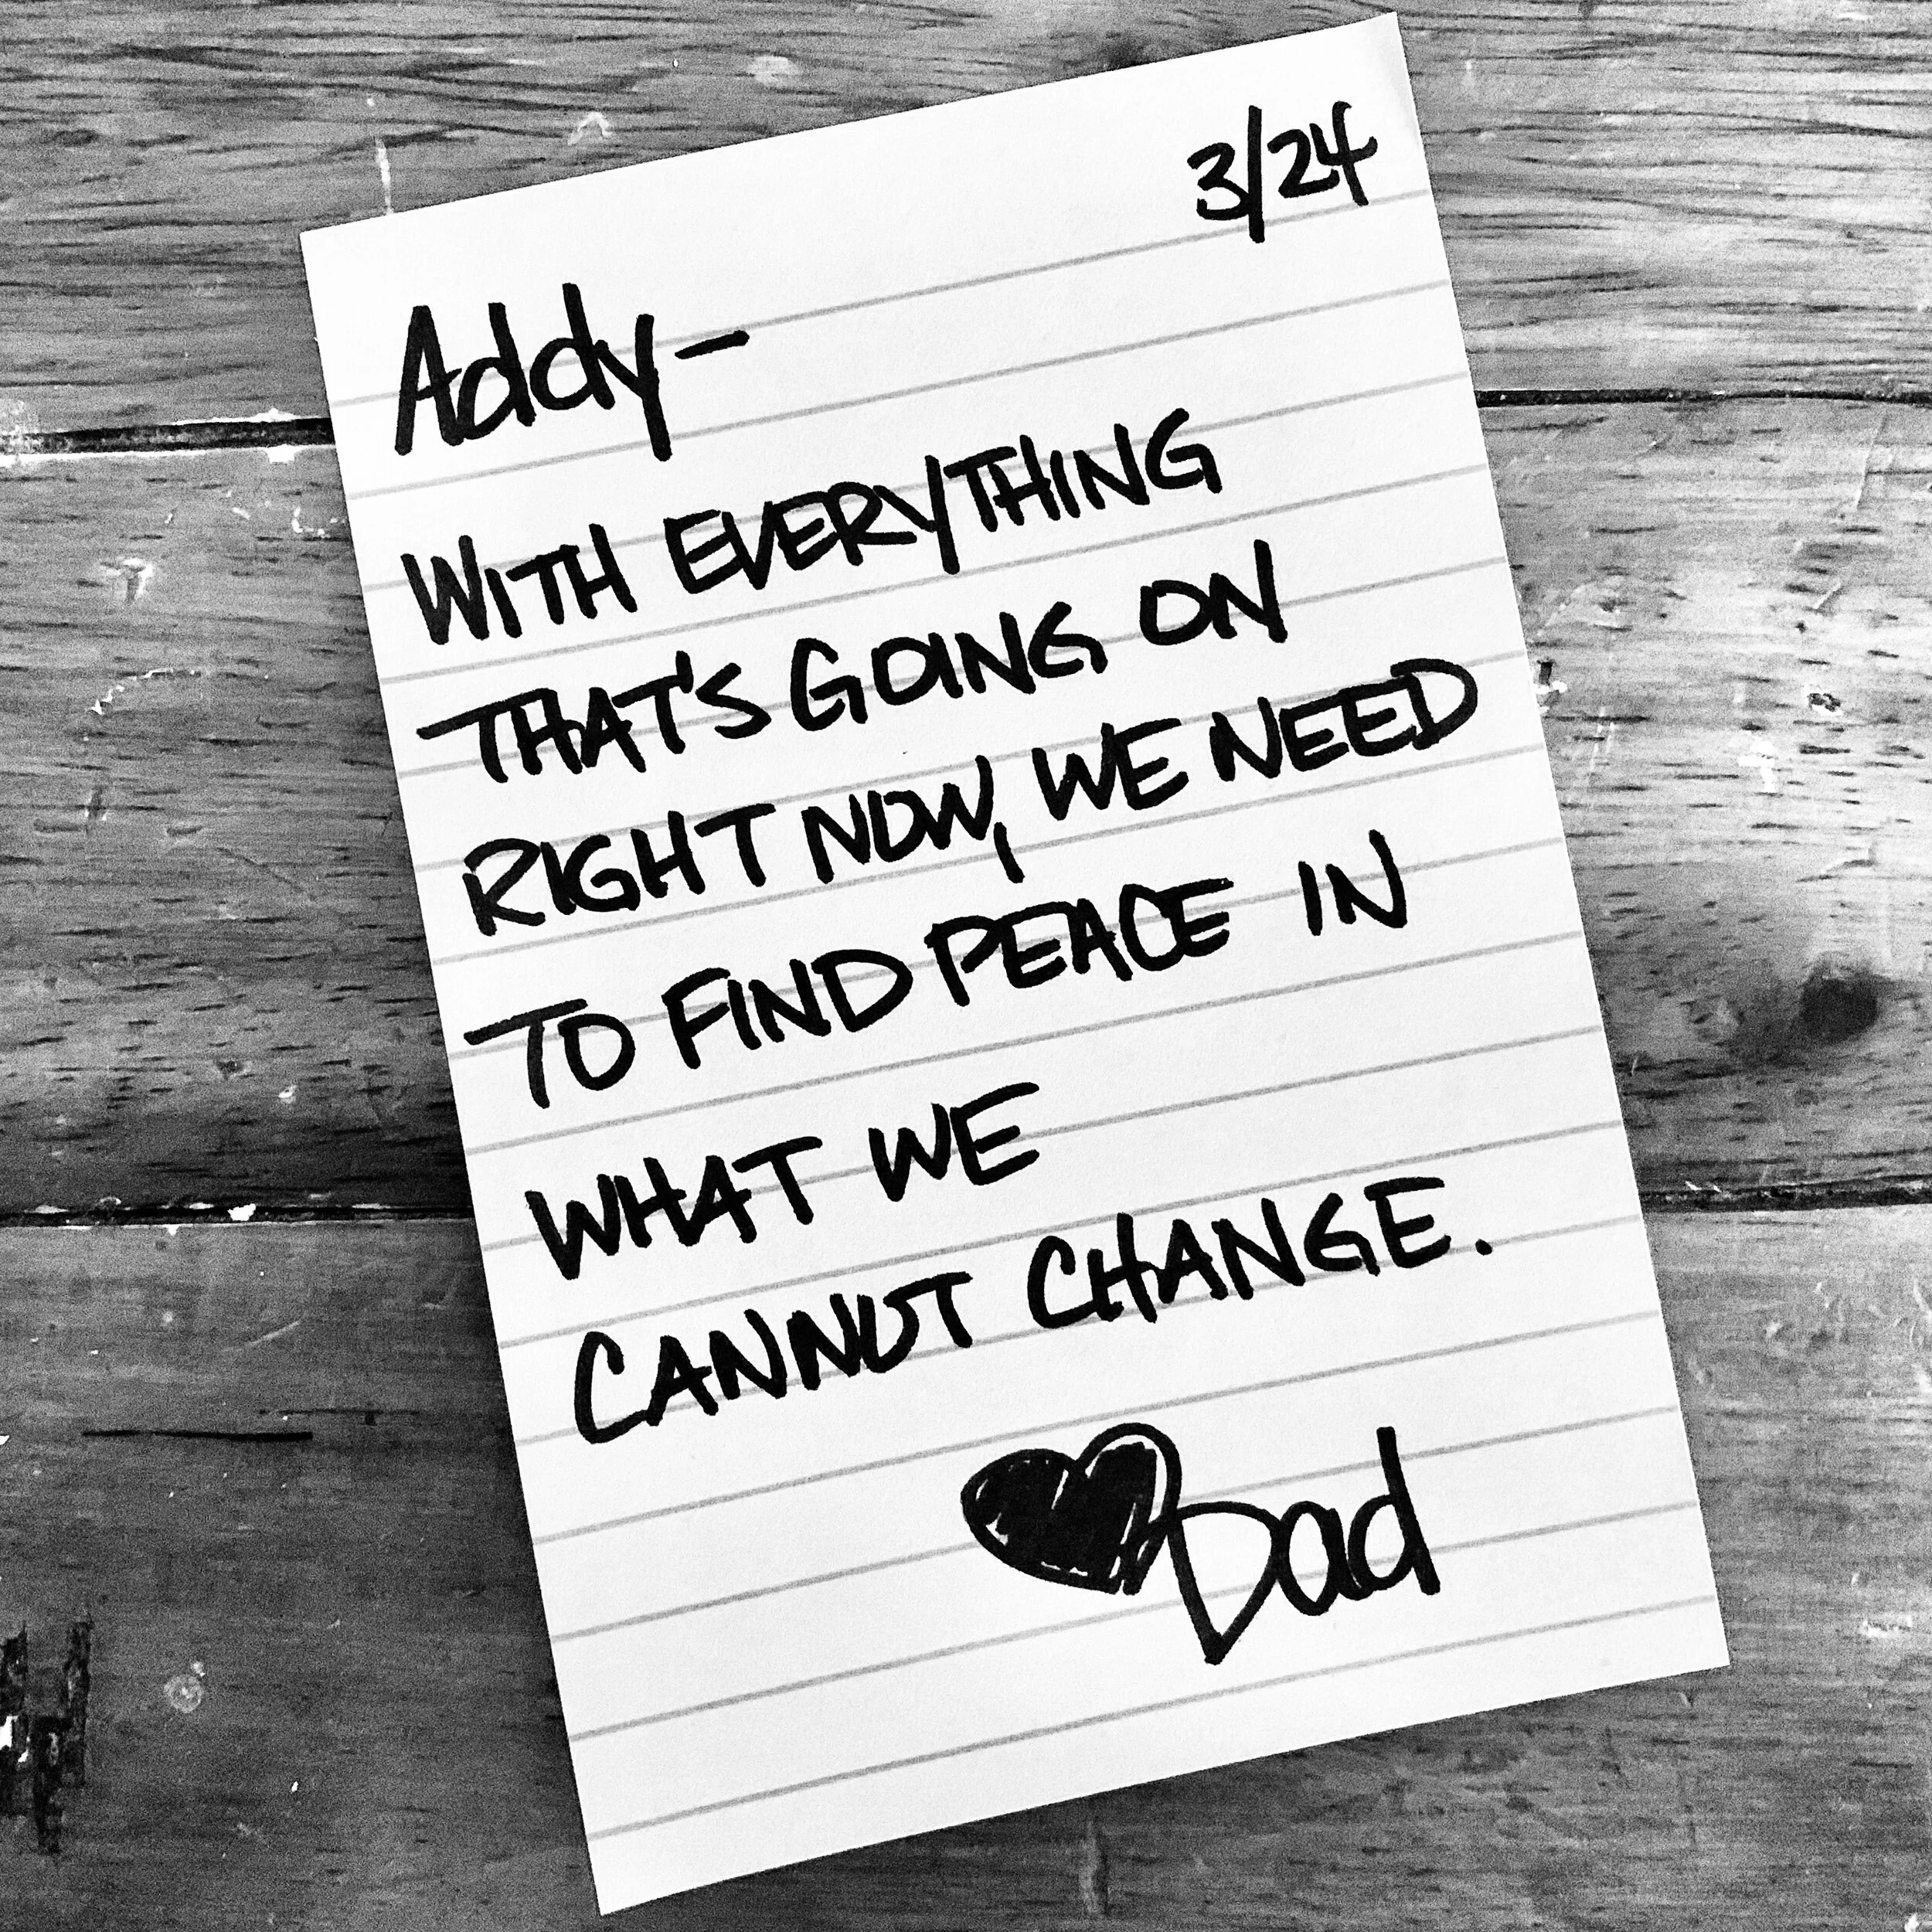 3/24
Addy-
WITH EVERYTHING
THAT'S GOING ON
RIGHT NOW, WE NEED
TO FIND PEACE IN
WHAT WE
CANNOT CHANGE.
Dad